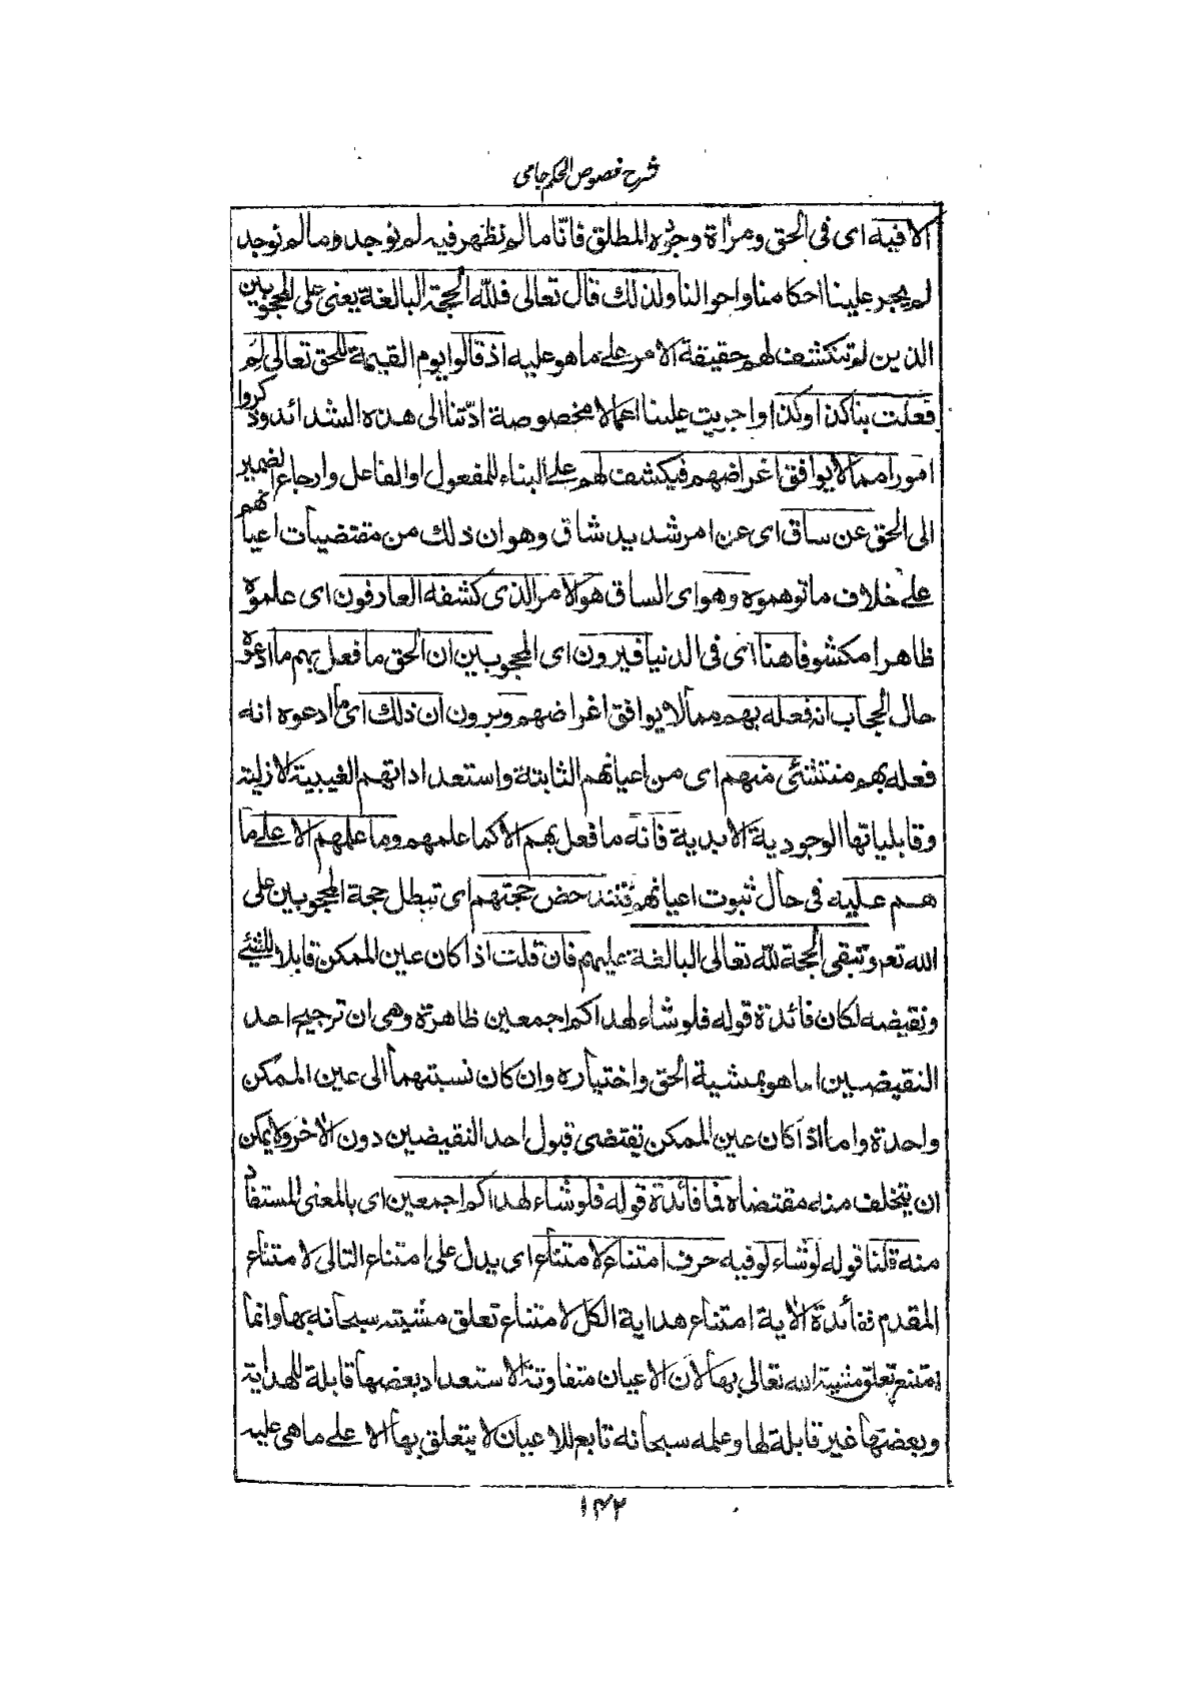 شرح فصوص الحكم جامى
الا فيه اى فى الحق ومرآة وجوده المطلق فانّا ما لم نظهر فيه لم نوجد وما لم نوجد
لم يجر علينا احكامنا واحوالنا ولذلك قال تعالى فلله الحجة البالغة يعنى على المحجوبين
الذين لم تنكشف لهم حقيقة الامر على ما هو عليه اذ قالوا يوم القيمة للحق تعالى لِمَ
فعلت بنا كذا وكذا واجريت علينا اعمالا مخصوصة ادّتنا الى هذه الشدائد وذكروا
امورا مما لا يوافق اغراضهم فيكشف لهم على البناء للمفعول او الفاعل وارجاع الضمير
الى الحق عن ساق اى عن امر شديد شاق وهو ان ذلك من مقتضيات اعيانهم
على خلاف ما توهموه وهو اى الساق هو الامر الذى كشفه العارفون اى علموه
ظاهرا مكشوفا هنا اى فى الدنيا فيرون اى المحجوبين ان الحق ما فعل بهم ما ادعوه
حال الحجاب انه فعله بهم مما لا يوافق اغراضهم ويرون ان ذلك اى ما ادعوه انه
فعله بهم منتشئ منهم اى من اعيانهم الثابتة واستعداداتهم الغيبية الازلية
وقابلياتها الوجودية الابدية فانه ما فعل بهم الا كما علمهم وما علمهم الا على ما
هم عليه فى حال ثبوت اعيانهم فتندحض حجتهم اى تبطل حجة المحجوبين على
الله تعم وتبقى الحجة لله تعالى البالغة عليهم فان قلت اذا كان عين الممكن قابلا للشئ
ونقيضه لكان فائدة قوله فلو شاء لهداكم اجمعين ظاهرة وهى ان ترجيح احد
النقيضين انما هو بمشية الحق واختياره وان كان نسبتهما الى عين الممكن
واحدة واما اذا كان عين الممكن تقتضى قبول احد النقيضين دون الآخر ولا يمكن
ان يتخلف منه مقتضاه فما فائدة قوله فلو شاء لهداكم اجمعين اى بالمعنى المستفاد
منه قلنا قوله لو شاء لو فيه حرف امتناع لامتناع اى يدل على امتناع التالى لامتناع
المقدم ففائدة الآية امتناع هداية الكل لامتناع تعلق مشيته سبحانه بها وانما
امتنع تعلق مشية الله تعالى بها لان الاعيان متفاوتة الاستعداد بعضها قابلة للهداية
وبعضها غير قابلة لها وعلمه سبحانه تابع للاعيان لا يتعلق بها الا على ما هى عليه
١٤٢